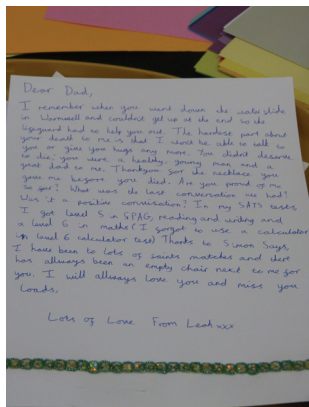 Dear Dad,
I remember when you went down the waterslide
in and couldn't get up at the end so the
lifeguard had to help you out. The hardest part about
your death to me is that I won't be able to talk to
you or give you hugs any more. You didn't deserve
to die, you were a healthy, young man and a
great dad to me. Thankyou for the necklace you
gave me before you died. Are you proud of me
so far? What was the last conversation we had?
Was it a positive conversation? In my SATS tests
I got level 5 in SPAG, reading and writing and
a level 6 in maths (I forgot to use a calculator
in level 6 calculator test) Thanks to Simon Says,
I have been to lots of saints matches and there
has allways been an empty chair next to me for
you. I will allways love you and miss you
loads,
Lots of Love From Leah xxx